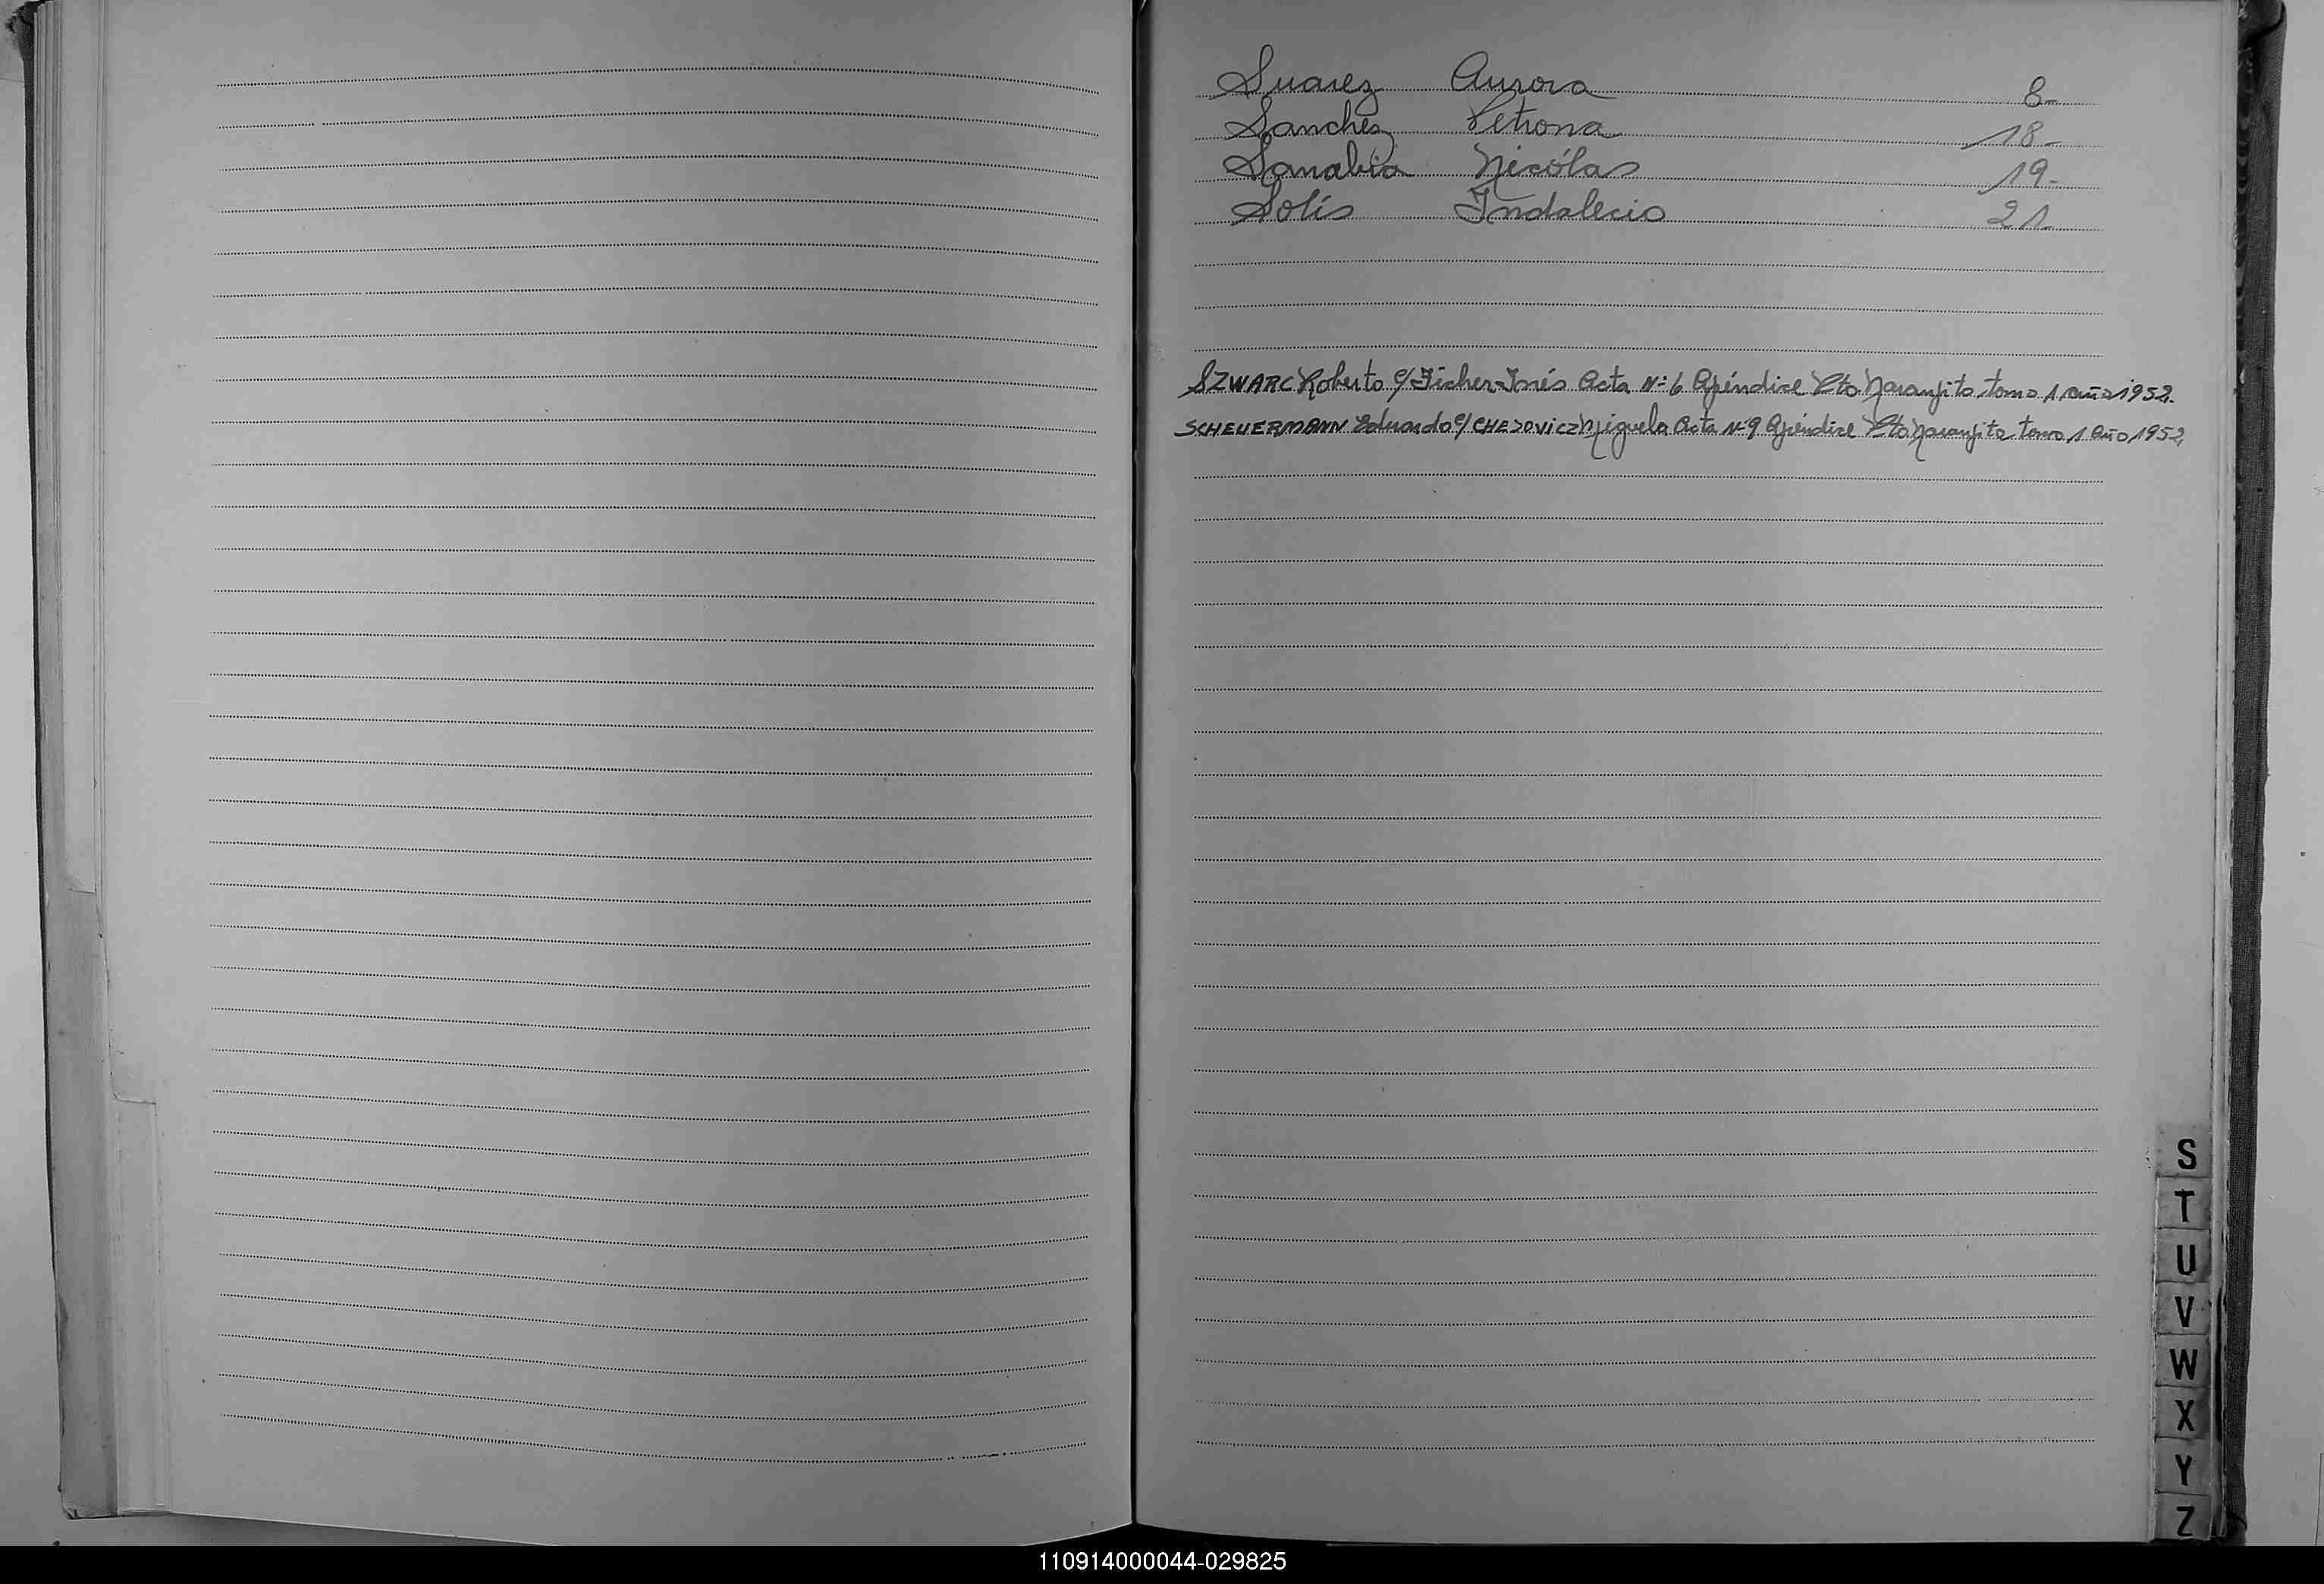 Suarez Aurora 8-
Sanchez Petrona 18-
Sanabria Nicólas 19-
Solís Indalecio 21-
SZWARC Roberto c/ Fischer Inés Acta Nº 6 Apéndice Pto Naranjito tomo 1 año 1952.
SCHEUERMANN Eduardo c/ Miguela Acta Nº 9 Apéndice Pto Naranjito tomo 1 año 1952,
S
T
U
V
W
X
Y
Z
110914000044-029825